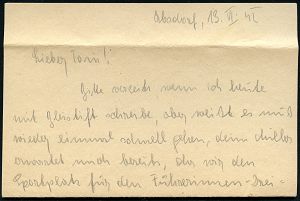 Absdorf, 13. VI. 41
Lieber Toni!
Bitte verzeih wenn ich heute
mit Bleistift schreibe, aber weißt es muß
wieder einmal schnell gehen, denn
erwartet mich bereits, da wir den
Sportplatz für den Führerinnen-Drei-